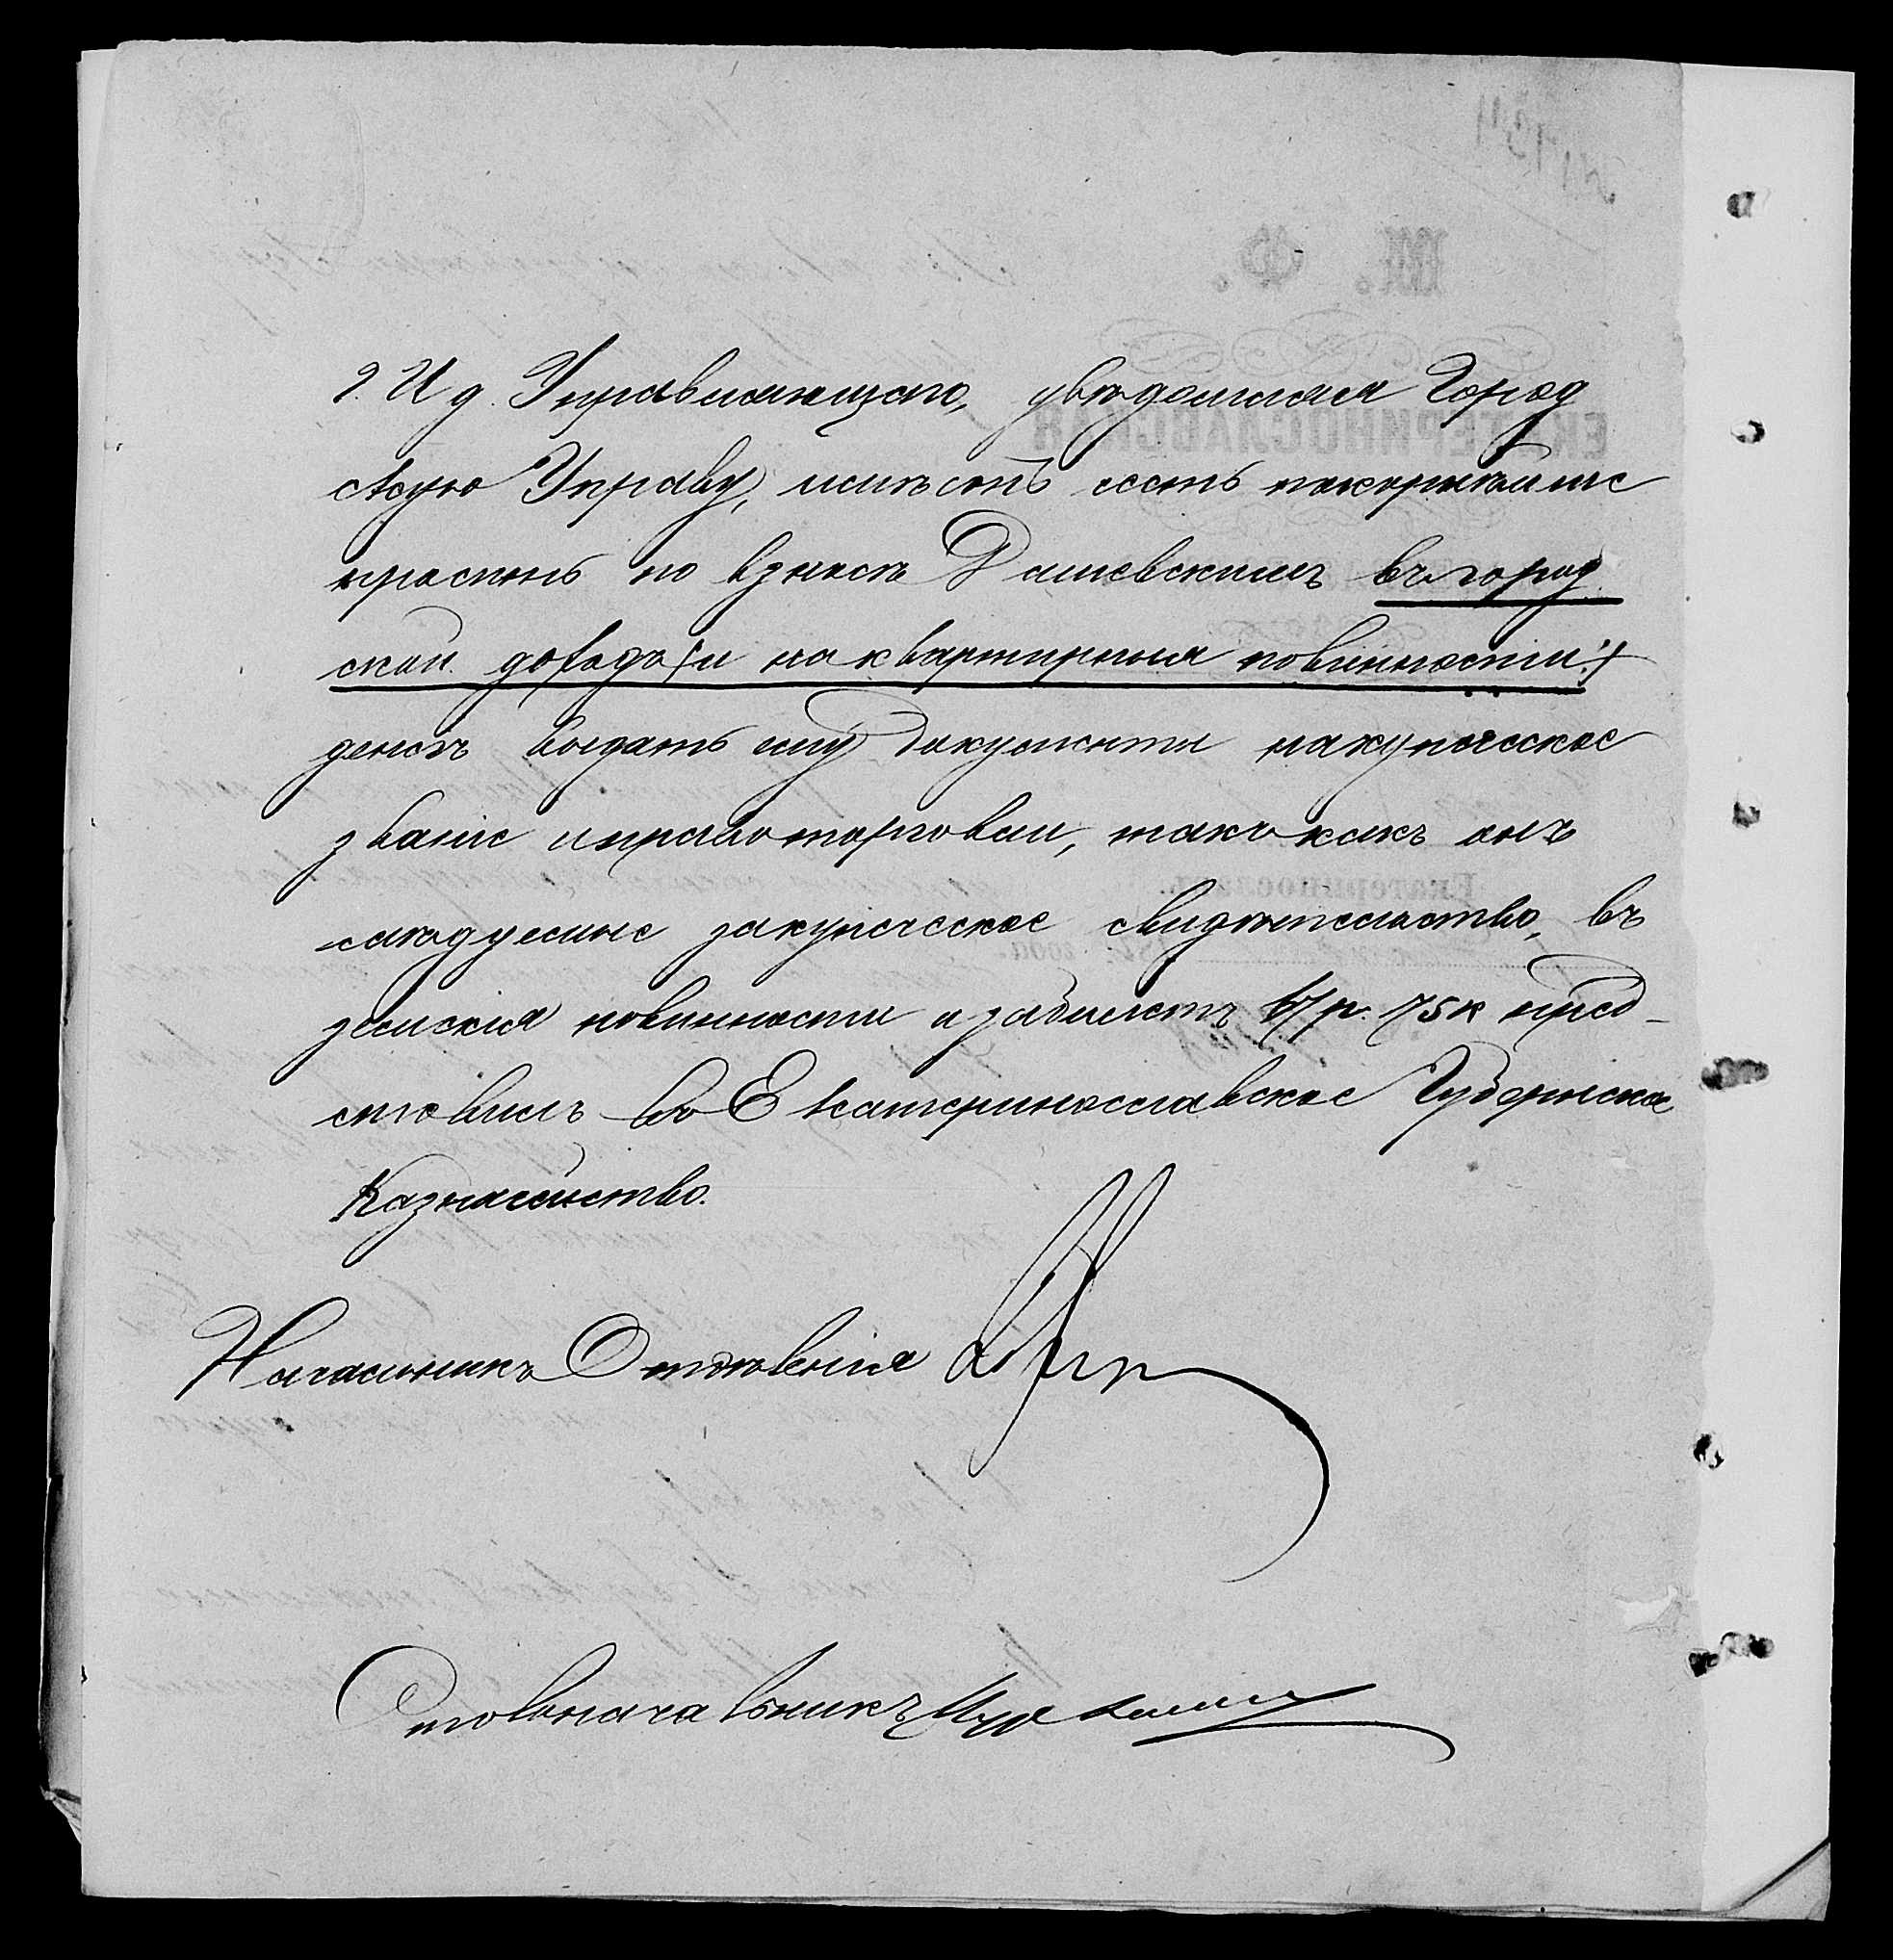 г. И д. Управляющаго, увѣдомляя Город
скую Управу, имѣетъ честь покорнѣйше
просить по взносѣ Дашевскимъ въ город.
ской доходъ (и на квартирныя повинности!)
денегъ выдать ему документы на купеческое
званіе и право торговли, такъ какъ онъ
слѣдуемые за купеческое свидѣтельство, въ
земскія повинности и за билетъ 75 к пред-
ставилъ въ Екатеринославское Губернское
Казначейство.
Начальникъ Отдѣленія
Столоначальникъ